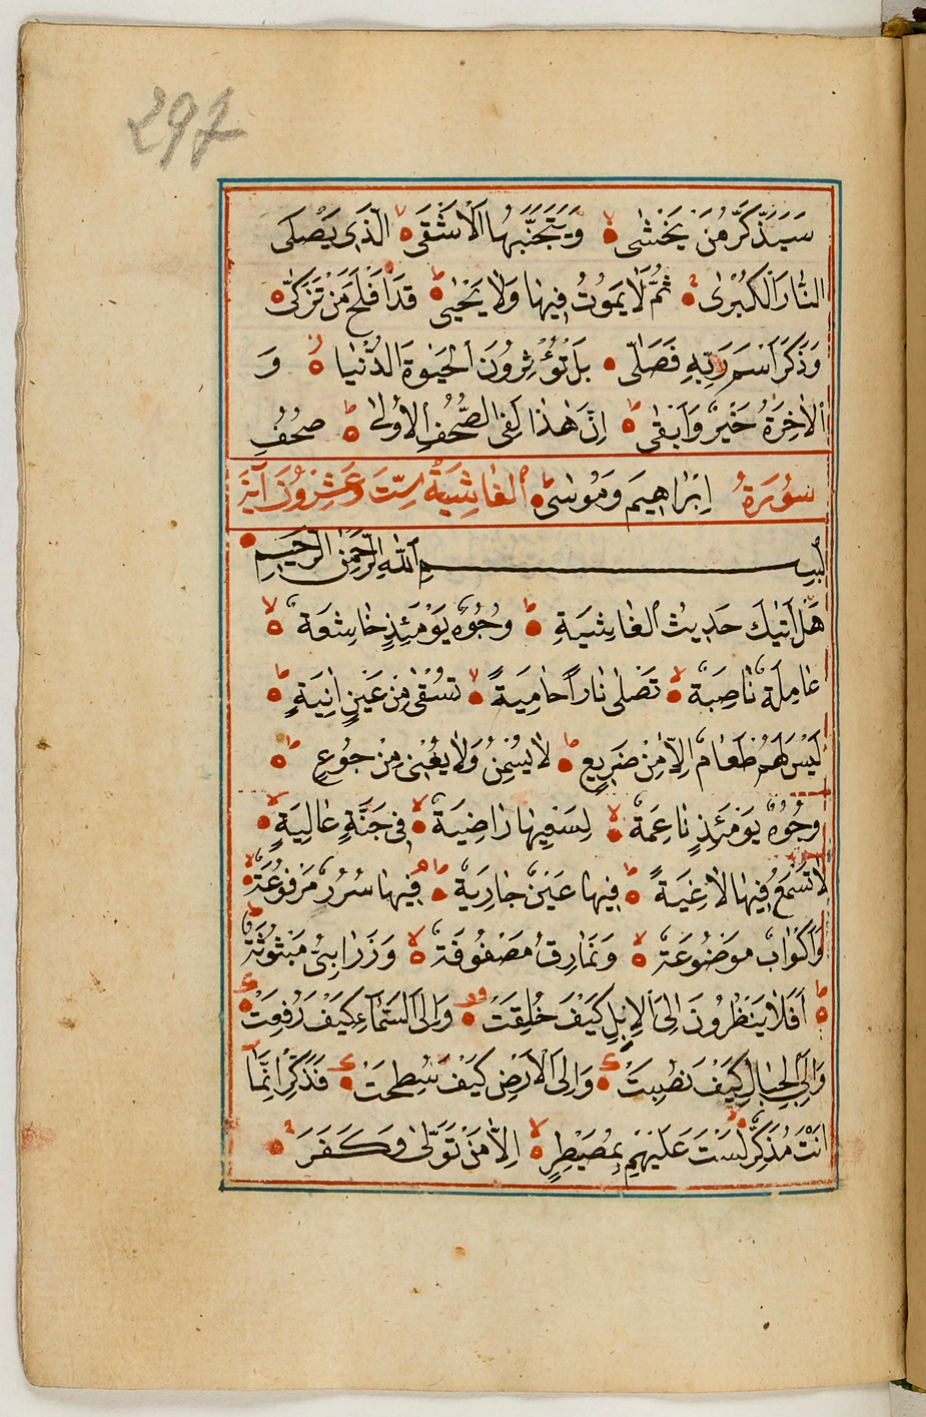 297
سَيَذَّكَّرُ مَنْ يَخْشٰى وَيَتَجَنَّبُهَا الْاَشْقَى الَّذٖى يَصْلَى
النَّارَ الْكُبْرٰى ثُمَّ لَا يَمُوتُ فِيهَا وَلَا يَحْيٰى قَدْ اَفْلَحَ مَنْ تَزَكّٰى
وَذَكَرَ اسْمَ رَبِّهِ فَصَلّٰى بَلْ تُؤْثِرُونَ الْحَيٰوةَ الدُّنْيَا وَ
الْاٰخِرَةُ خَيْرٌ وَاَبْقٰى اِنَّ هٰذَا لَفِى الصُّحُفِ الْاُولٰى صُحُفِ
اِبْرَاهِيمَ وَمُوسٰى
سُورَةُ الْغَاشِيَةُ سِتَّ وَعَشِرُونَ آيَةً
بِسْمِ اللّٰهِ الرَّحْمٰنِ الرَّحِيمِ
هَلْ اَتٰيكَ حَدِيثُ الْغَاشِيَةِ وُجُوهٌ يَوْمَئِذٍ خَاشِعَةٌ
عَامِلَةٌ نَاصِبَةٌ تَصْلٰى نَاراً حَامِيَةً تُسْقٰى مِنْ عَيْنٍ اٰنِيَةٍ
لَيْسَ لَهُمْ طَعَامٌ اِلَّا مِنْ ضَرِيعٍ لَا يُسْمِنُ وَلَا يُغْنِى مِنْ جُوعٍ
وُجُوهٌ يَوْمَئِذٍ نَاعِمَةٌ لِسَعْيِهَا رَاضِيَةٌ فِى جَنَّةٍ عَالِيَةٍ
لَا تَسْمَعُ فِيهَا لَاغِيَةً فِيهَا عَيْنٌ جَارِيَةٌ فِيهَا سُرُرٌ مَرْفُوعَةٌ
وَاَكْوَابٌ مَوْضُوعَةٌ وَنَمَارِقُ مَصْفُوفَةٌ وَزَرَابِىُّ مَبْثُوثَةٌ
اَفَلَا يَنْظُرُونَ اِلَى الْاِبِلِ كَيْفَ خُلِقَتْ وَاِلَى السَّمَاءِ كَيْفَ رُفِعَتْ
وَاِلَى الْجِبَالِ كَيْفَ نُصِبَتْ وَاِلَى الْاَرْضِ كَيْفَ سُطِحَتْ فَذَكِّرْ اِنَّمَا
اَنْتَ مُذَكِّرٌ لَسْتَ عَلَيْهِمْ بِمُصَيْطِرٍ اِلَّا مَنْ تَوَلّٰى وَكَفَرَ